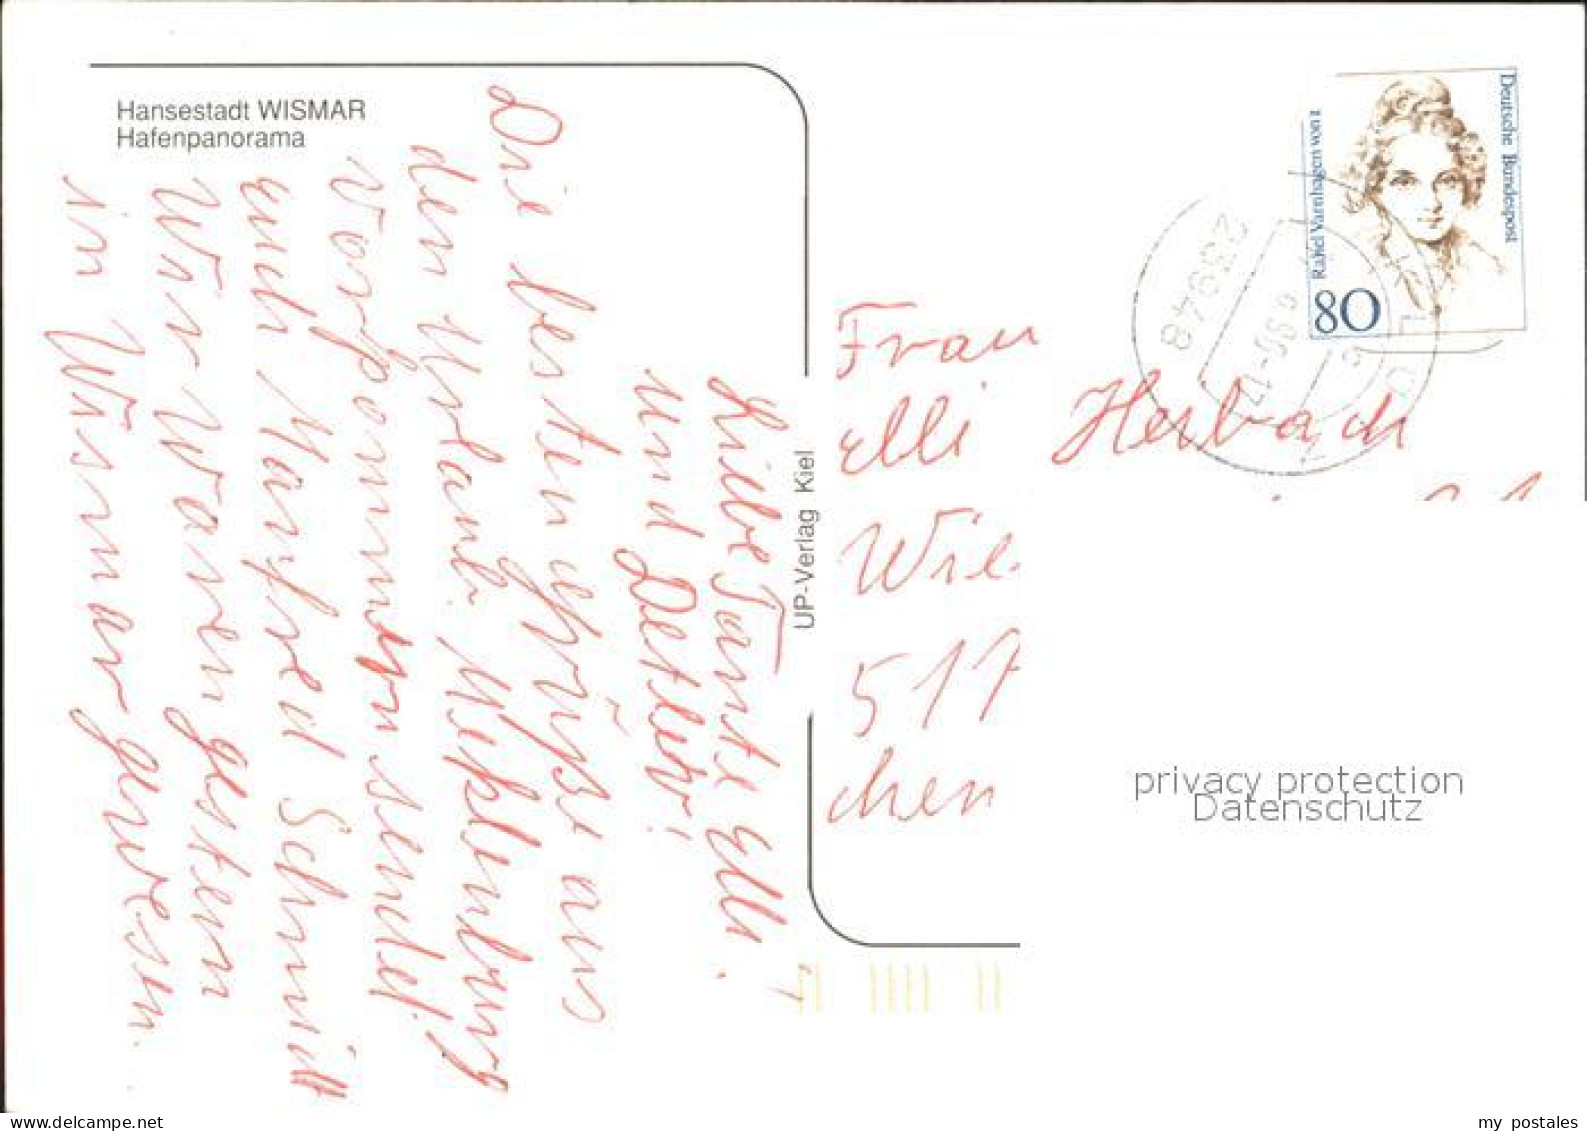 Hansestadt WISMAR
Hafenpanorama
Liebe Tante Elli,
und Detlev!
Die besten Grüße aus
den Urlaub. Meklenburg
Vorpommern sendet
euch Manfred Schmidt
Wir waren gestern
in Wismar gewesen.
UP-Verlag Kiel
Deutsche Bundespost
Rahel Varnhagen von
80
23948
Frau
Elli Herbach
517
chen
privacy protection
Datenschutz
www.delcampe.net
my_postales